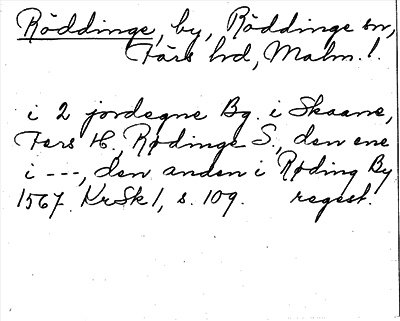 Röddinge, by, Röddinge sn,
Färs hd, Malm. l.
i 2 jordegne Bg. i Skaane,
Fers H., Rødinge S., den ene
i ---, den anden i Røding By
1567. KrSk 1, s. 109. regest.